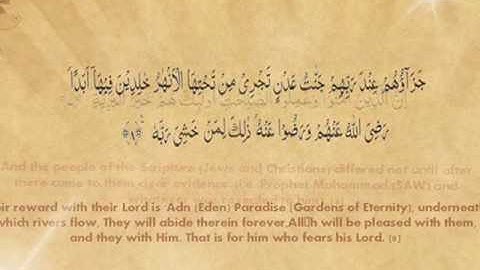 جَزَآؤُهُمْ عِندَ رَبِّهِمْ جَنَّٰتُ عَدْنٍ تَجْرِى مِن تَحْتِهَا ٱلْأَنْهَٰرُ خَٰلِدِينَ فِيهَآ أَبَدًا
رَّضِىَ ٱللَّهُ عَنْهُمْ وَرَضُوا۟ عَنْهُ ذَٰلِكَ لِمَنْ خَشِىَ رَبَّهُۥ ﴿٨﴾
And the people of the Scripture (Jews and Christians) differed not until after
there came to them clear evidence. (i.e. Prophet Muhammad (SAW) and
ir reward with their Lord is 'Adn (Eden) Paradise (Gardens of Eternity), underneat
which rivers flow, They will abide therein forever, will be pleased with them,
and they with Him. That is for him who fears his Lord. [8]